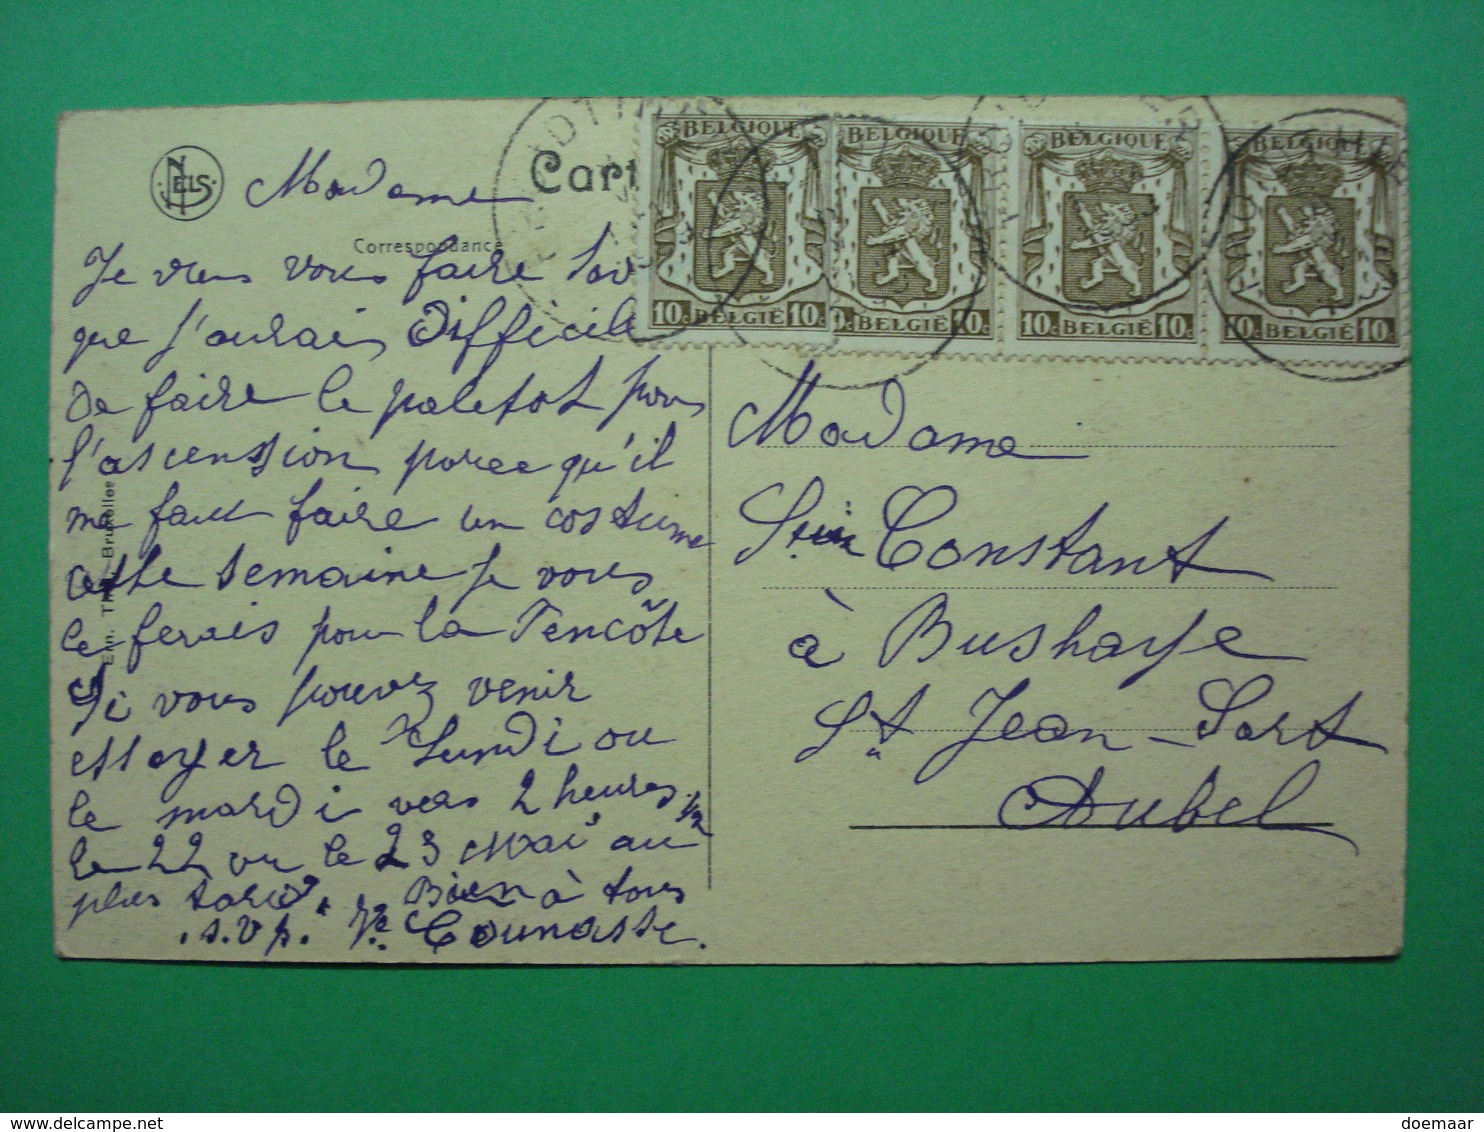 NELS
Carte
Madame
Correspondance
Je viens vous faire sav
que j'aurais difficile
de faire le paletot pour
l'ascenssion parce qu'il
me faut faire un costume
cette semaine je vous
le ferais pour la Pencôte
Si vous pouvez venir
essayer le Lundi ou
le mardi vers 2 heures 1/2
le 22 ou le 23 Mai au
plus tard. Bien à tous
.s.v.p.
Ern. Thill, Bruxelles
BELGIQUE
10c BELGIË 10c
BELGIQUE
10c BELGIË 10c
BELGIQUE
10c BELGIË 10c
BELGIQUE
10c BELGIË 10c
Madame
Constant
à Bushaye
St Jean-Sart
Aubel
doemaar